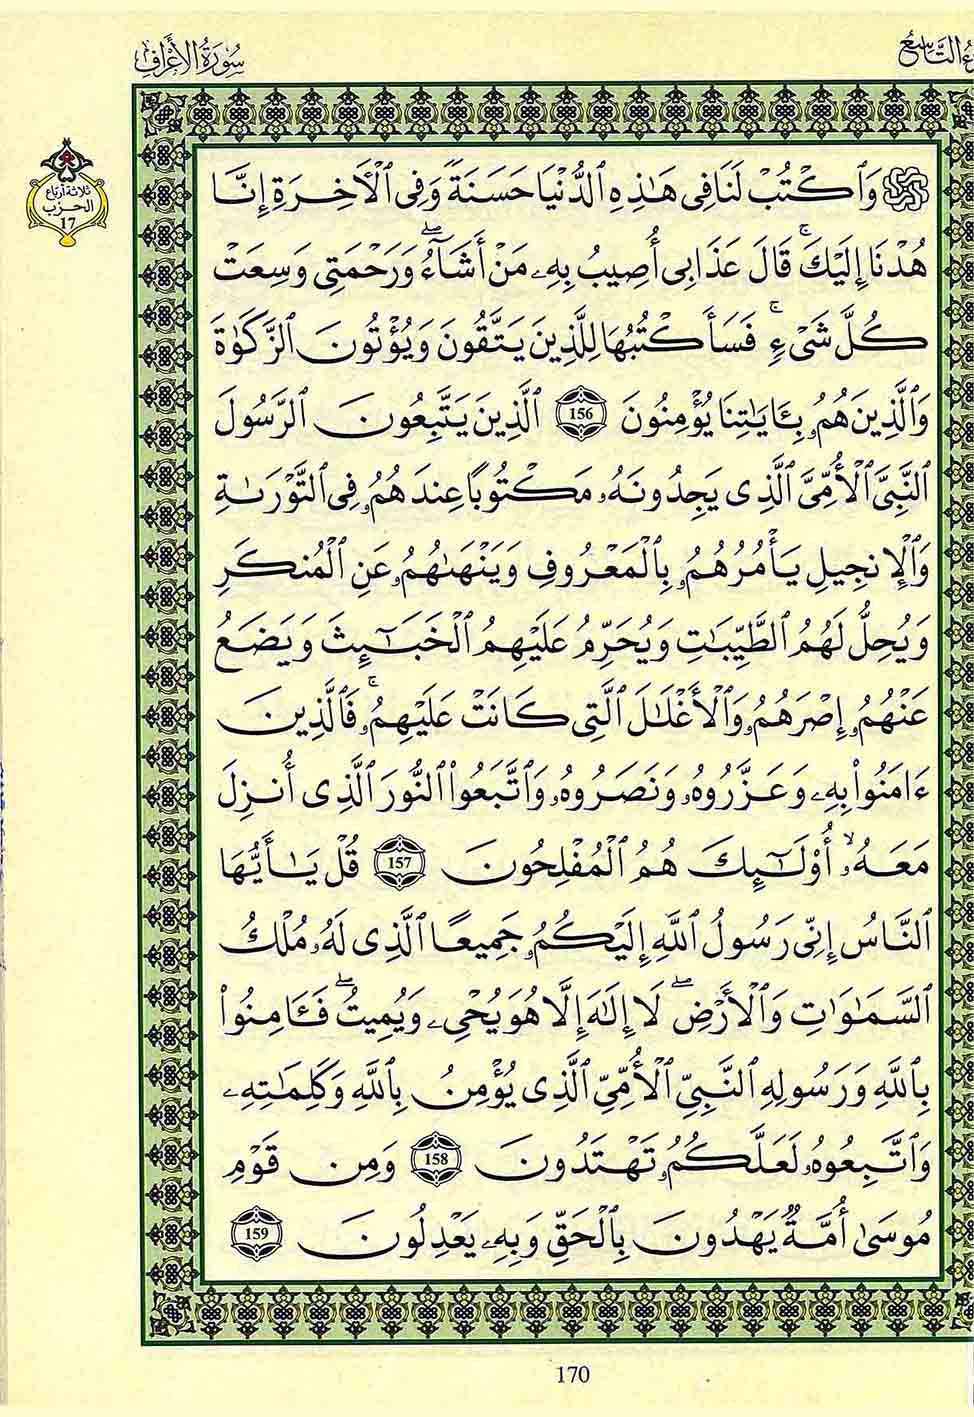 سُورَةُ الأَعْرَافِ
ثلاثة أرباع
الحزب
17
وَٱكْتُبْ لَنَا فِى هَٰذِهِ ٱلدُّنْيَا حَسَنَةً وَفِى ٱلْأَخِرَةِ إِنَّا
هُدْنَا إِلَيْكَ ۚ قَالَ عَذَابِى أُصِيبُ بِهِۦ مَنْ أَشَآءُ ۖ وَرَحْمَتِى وَسِعَتْ
كُلَّ شَىْءٍ ۚ فَسَأَكْتُبُهَا لِلَّذِينَ يَتَّقُونَ وَيُؤْتُونَ ٱلزَّكَوٰةَ
وَٱلَّذِينَ هُمُۥ بِـَٔايَٰتِنَا يُؤْمِنُونَ 156 ٱلَّذِينَ يَتَّبِعُونَ ٱلرَّسُولَ
ٱلنَّبِىَّ ٱلْأُمِّىَّ ٱلَّذِى يَجِدُونَهُۥ مَكْتُوبًا عِندَهُمُۥ فِى ٱلتَّوْرَىٰةِ
وَٱلْإِنجِيلِ يَأْمُرُهُمُۥ بِٱلْمَعْرُوفِ وَيَنْهَىٰهُمُۥ عَنِ ٱلْمُنكَرِ
وَيُحِلُّ لَهُمُ ٱلطَّيِّبَٰتِ وَيُحَرِّمُ عَلَيْهِمُ ٱلْخَبَٰٓئِثَ وَيَضَعُ
عَنْهُمُۥ إِصْرَهُمُۥ وَٱلْأَغْلَٰلَ ٱلَّتِى كَانَتْ عَلَيْهِمُۥ ۚ فَٱلَّذِينَ
ءَامَنُوا۟ بِهِۦ وَعَزَّرُوهُۥ وَنَصَرُوهُۥ وَٱتَّبَعُوا۟ ٱلنُّورَ ٱلَّذِى أُنزِلَ
مَعَهُۥ ۙ أُو۟لَٰٓئِكَ هُمُ ٱلْمُفْلِحُونَ 157 قُلْ يَٰأَيُّهَا
ٱلنَّاسُ إِنِّى رَسُولُ ٱللَّهِ إِلَيْكُمُۥ جَمِيعًا ٱلَّذِى لَهُۥ مُلْكُ
ٱلسَّمَٰوَٰتِ وَٱلْأَرْضِ ۖ لَا إِلَٰهَ إِلَّا هُوَ يُحْىِۦ وَيُمِيتُ ۖ فَـَٔامِنُوا۟
بِٱللَّهِ وَرَسُولِهِ ٱلنَّبِىِّ ٱلْأُمِّىِّ ٱلَّذِى يُؤْمِنُ بِٱللَّهِ وَكَلِمَٰتِهِۦ
وَٱتَّبِعُوهُۥ لَعَلَّكُمُۥ تَهْتَدُونَ 158 وَمِن قَوْمِ
مُوسَىٰ أُمَّةٌ يَهْدُونَ بِٱلْحَقِّ وَبِهِۦ يَعْدِلُونَ 159
170